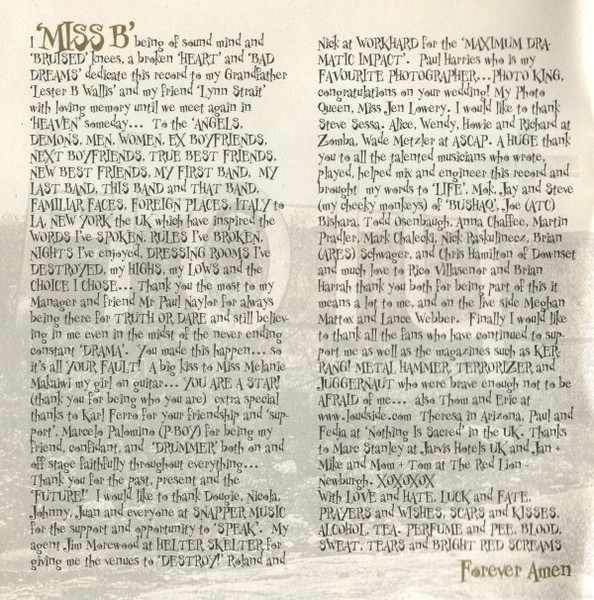 I 'MISS B' being of sound mind and
'BRUISED' knees, a broken 'HEART' and 'BAD
DREAMS' dedicate this record to my Grandfather
'Lester B Wallis' and my friend 'Lynn Strait'
with loving memory until we meet again in
'HEAVEN' someday... To the 'ANGELS,
DEMONS, MEN, WOMEN, EX BOYFRIENDS,
NEXT BOYFRIENDS, TRUE BEST FRIENDS,
NEW BEST FRIENDS, MY FIRST BAND, MY
LAST BAND, THIS BAND and THAT BAND,
FAMILIAR FACES, FOREIGN PLACES, ITALY to
LA, NEW YORK the UK which have inspired the
WORDS I've SPOKEN, RULES I've BROKEN,
NIGHTS I've enjoyed, DRESSING ROOMS I've
DESTROYED, my HIGHS, my LOWS and the
CHOICE I CHOSE... Thank you the most to my
Manager and friend Mr Paul Naylor for always
being there for TRUTH OR DARE and still believ-
ing in me even in the midst of the never ending
constant 'DRAMA'. You made this happen... so
it's all YOUR FAULT! A big kiss to Miss Melanie
Makaiwi my girl on guitar... YOU ARE A STAR!
(thank you for being who you are) extra special
thanks to Karl Ferro for your friendship and 'sup-
port', Marcelo Palomino (P-BOY) for being my
friend, confidant, and 'DRUMMER' both on and
off stage faithfully throughout everything...
Thank you for the past, present and the
'FUTURE!' I would like to thank Dougie, Nicola,
Johnny, Juan and everyone at SNAPPER MUSIC
for the support and opportunity to 'SPEAK'. My
agent Jim Morewood at HELTER SKELTER for
giving me the venues to 'DESTROY!' Roland and
Nick at WORKHARD for the 'MAXIMUM DRA-
MATIC IMPACT'. Paul Harries who is my
FAVOURITE PHOTOGRAPHER...PHOTO KING,
congratulations on your wedding! My Photo
Queen, Miss Jen Lowery. I would like to thank
Steve Sessa, Alice, Wendy, Howie and Richard at
Zomba, Wade Metzler at ASCAP. A HUGE thank
you to all the talented musicians who wrote,
played, helped mix and engineer this record and
brought my words to 'LIFE', Mok, Jay and Steve
(my cheeky monkeys) of 'BUSHAQ', Joe (ATC)
Bishara, Todd Osenbaugh, Anna Chaffee, Martin
Pradler, Mark Chalecki, Nick Raskulinecz, Brian
(ARES) Schwager, and Chris Hamilton of Downset
and much love to Rico Villasenor and Brian
Harrah thank you both for being part of this it
means a lot to me, and on the live side Meghan
Mattox and Lance Webber. Finally I would like
to thank all the fans who have continued to sup-
port me as well as the magazines such as KER-
RANG! METAL HAMMER, TERRORIZER and
JUGGERNAUT who were brave enough not to be
AFRAID of me... also Thom and Eric at
www.loudside.com Theresa in Arizona, Paul and
Fedia at 'Nothing Is Sacred' in the UK. Thanks
to Marc Stanley at Jarvis Hotels UK and Jan +
Mike and Mom + Tom at The Red Lion -
Newburgh. XOXOXOX
With LOVE and HATE, LUCK and FATE,
PRAYERS and WISHES, SCARS and KISSES,
ALCOHOL, TEA, PERFUME and PEE, BLOOD,
SWEAT, TEARS and BRIGHT RED SCREAMS
Forever Amen